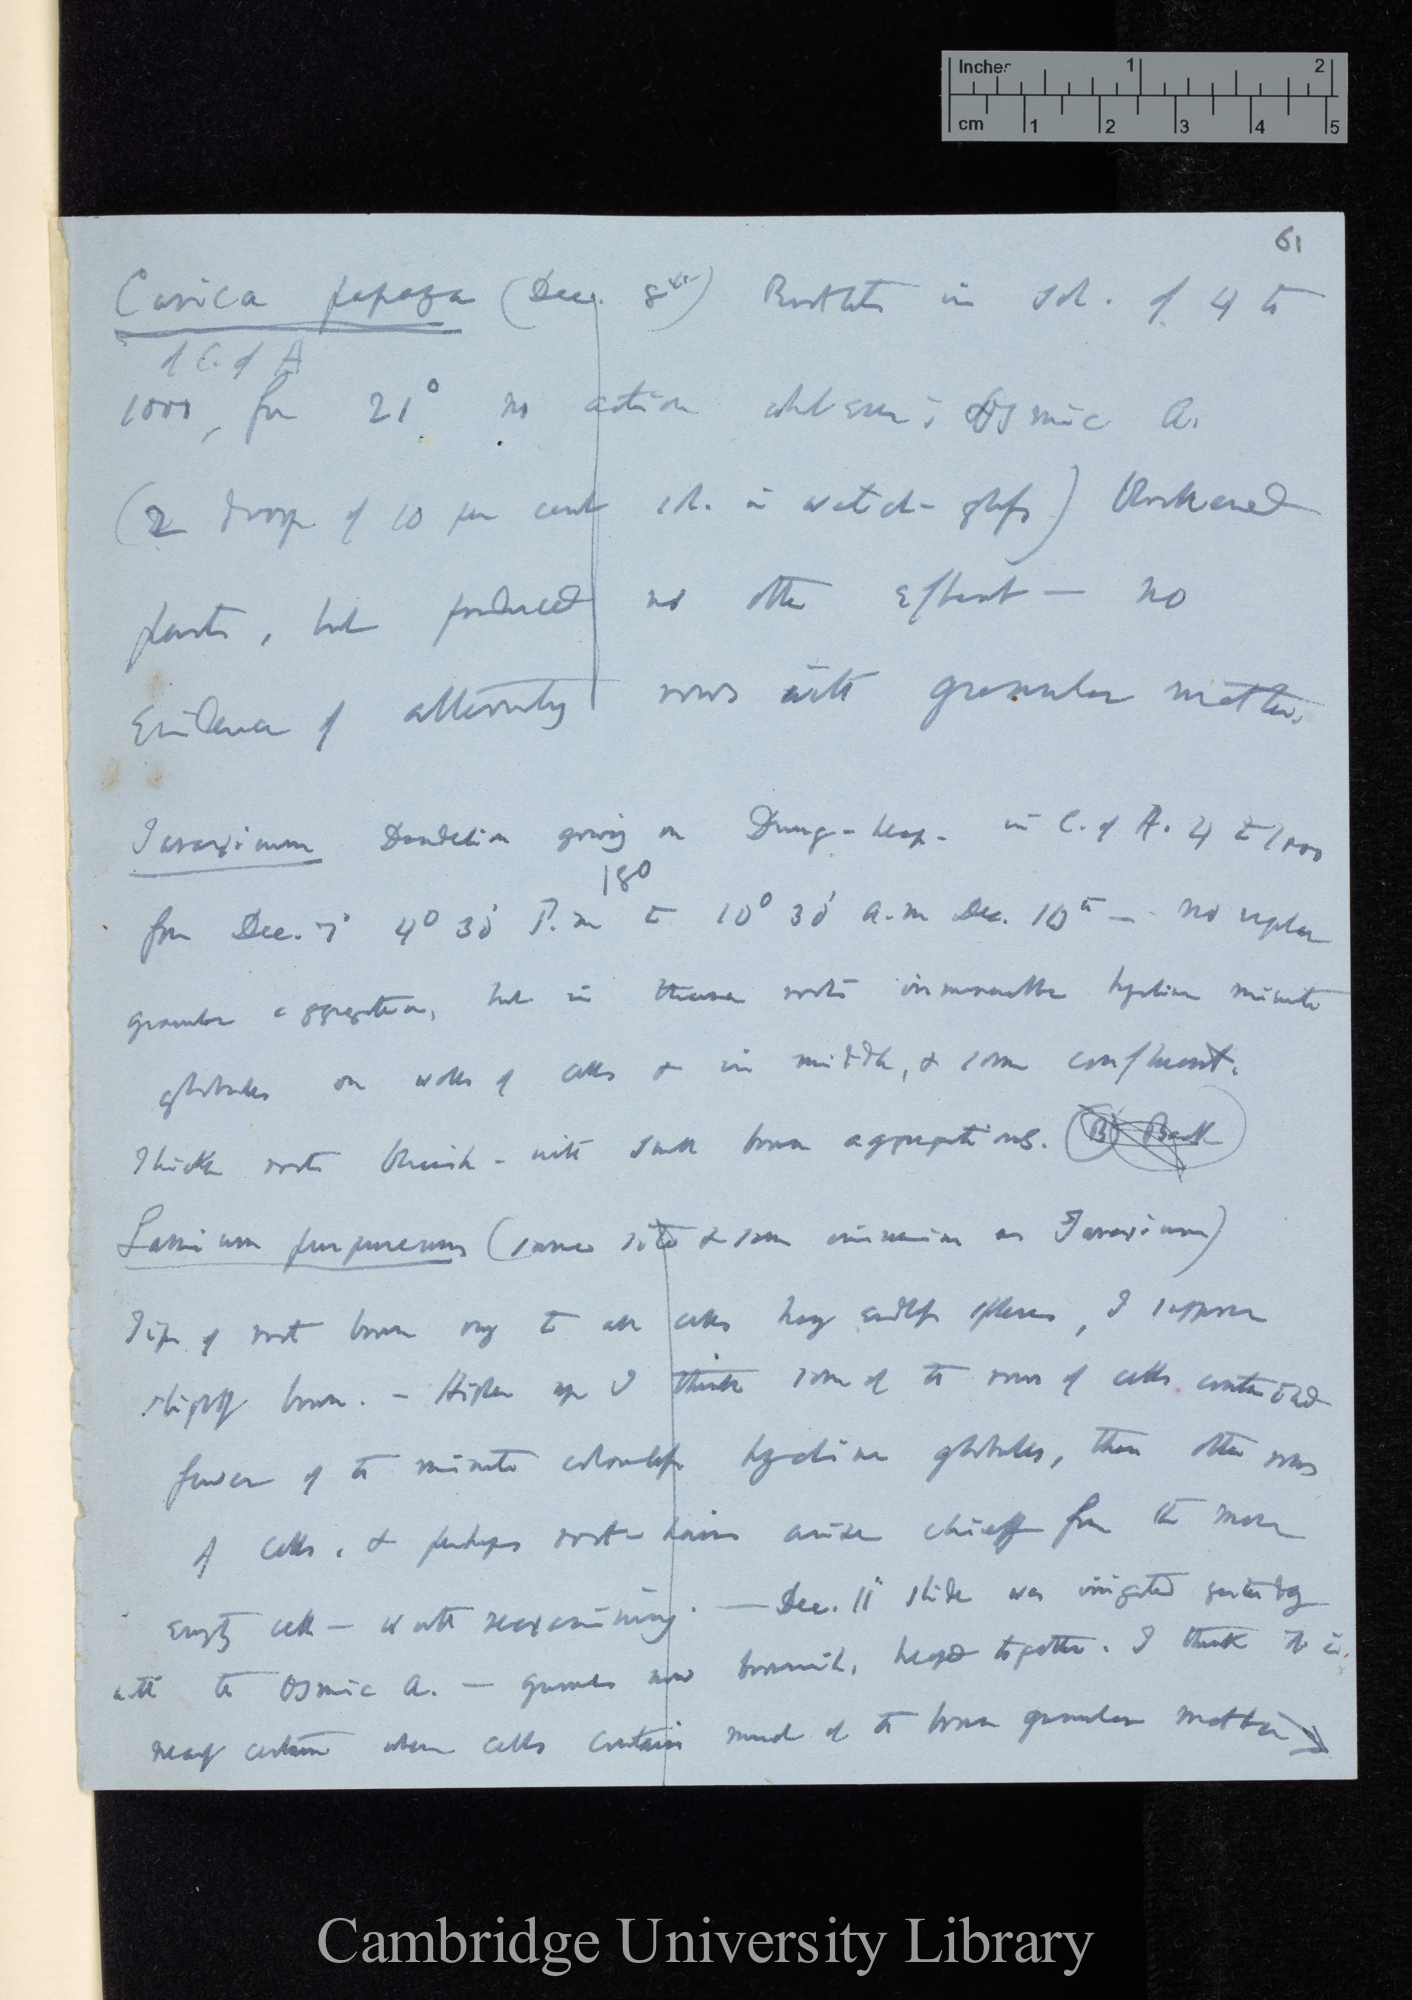 Inches 1 2
cm 1 2 3 4 5
61
Carica papaya (Dec. 8th) Rootlets in sol. of 4 to
of C. of A
1000, for 21° no action whatever; Osmic a.
(2 drops of 10 per cent sol. in watch-glass) blackened
parts, but produced no other effect — no
Evidence of alternating rows with granular matter.
Taraxicum Dandelion growing on Dung-heap- in C. of A. 4 to 1000
18°
from Dec. 9th 4° 30' P.m to 10° 30' a.m Dec. 10th — no regular
granular aggregation, but in thinner roots innumerable hyaline minute
globules on walls of cells or in middle, & some confluent.
Thicker roots brownish - with small brown aggregations. (B) Back
Lamium purpureum (same site & same immersion as Taraxicum)
Tips of root brown owing to all cells having endless spheres, I suppose
slightly brown. — Higher up I think some of the rows of cells contained
fewer of the minute colourless hyaline globules, than other rows
of cells, & perhaps root-hairs arise chiefly from the more
empty cells — worth reexamining. — Dec. 11th slide was irrigated yesterday
with the Osmic a. — granules now brownish, heaped together. I think it is
nearly certain where cells contain much of the brown granular matter →
Cambridge University Library